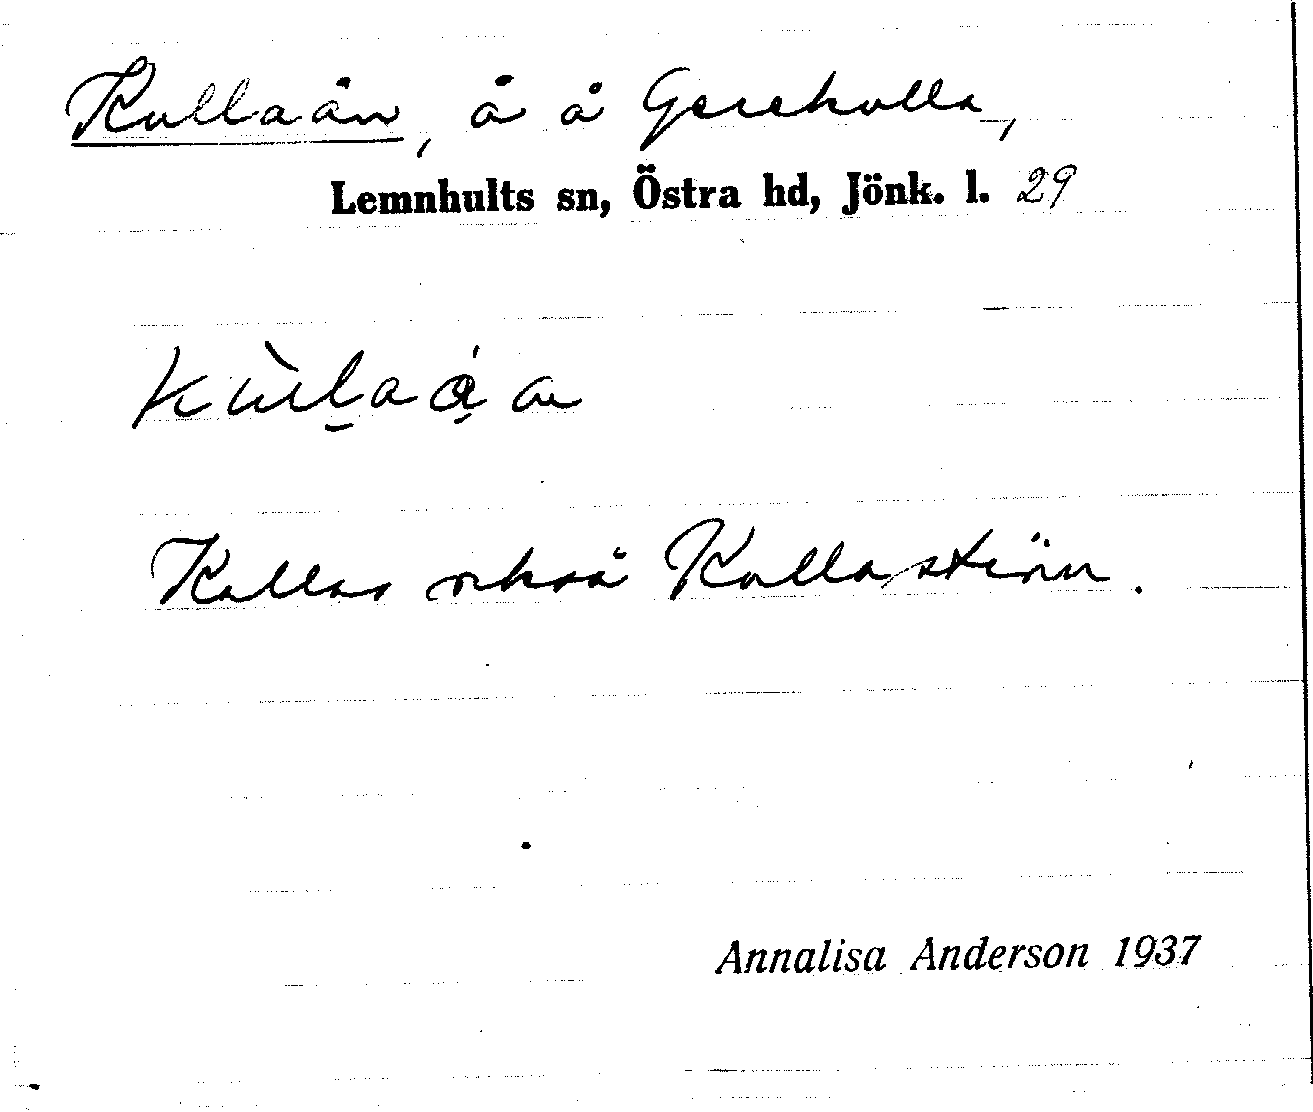 Kullaån, å å Gereкulla,
Lemnhults sn, Östra hd, Jönk. l. 29
Kallas också Kullaström.
Annalisa Anderson 1937